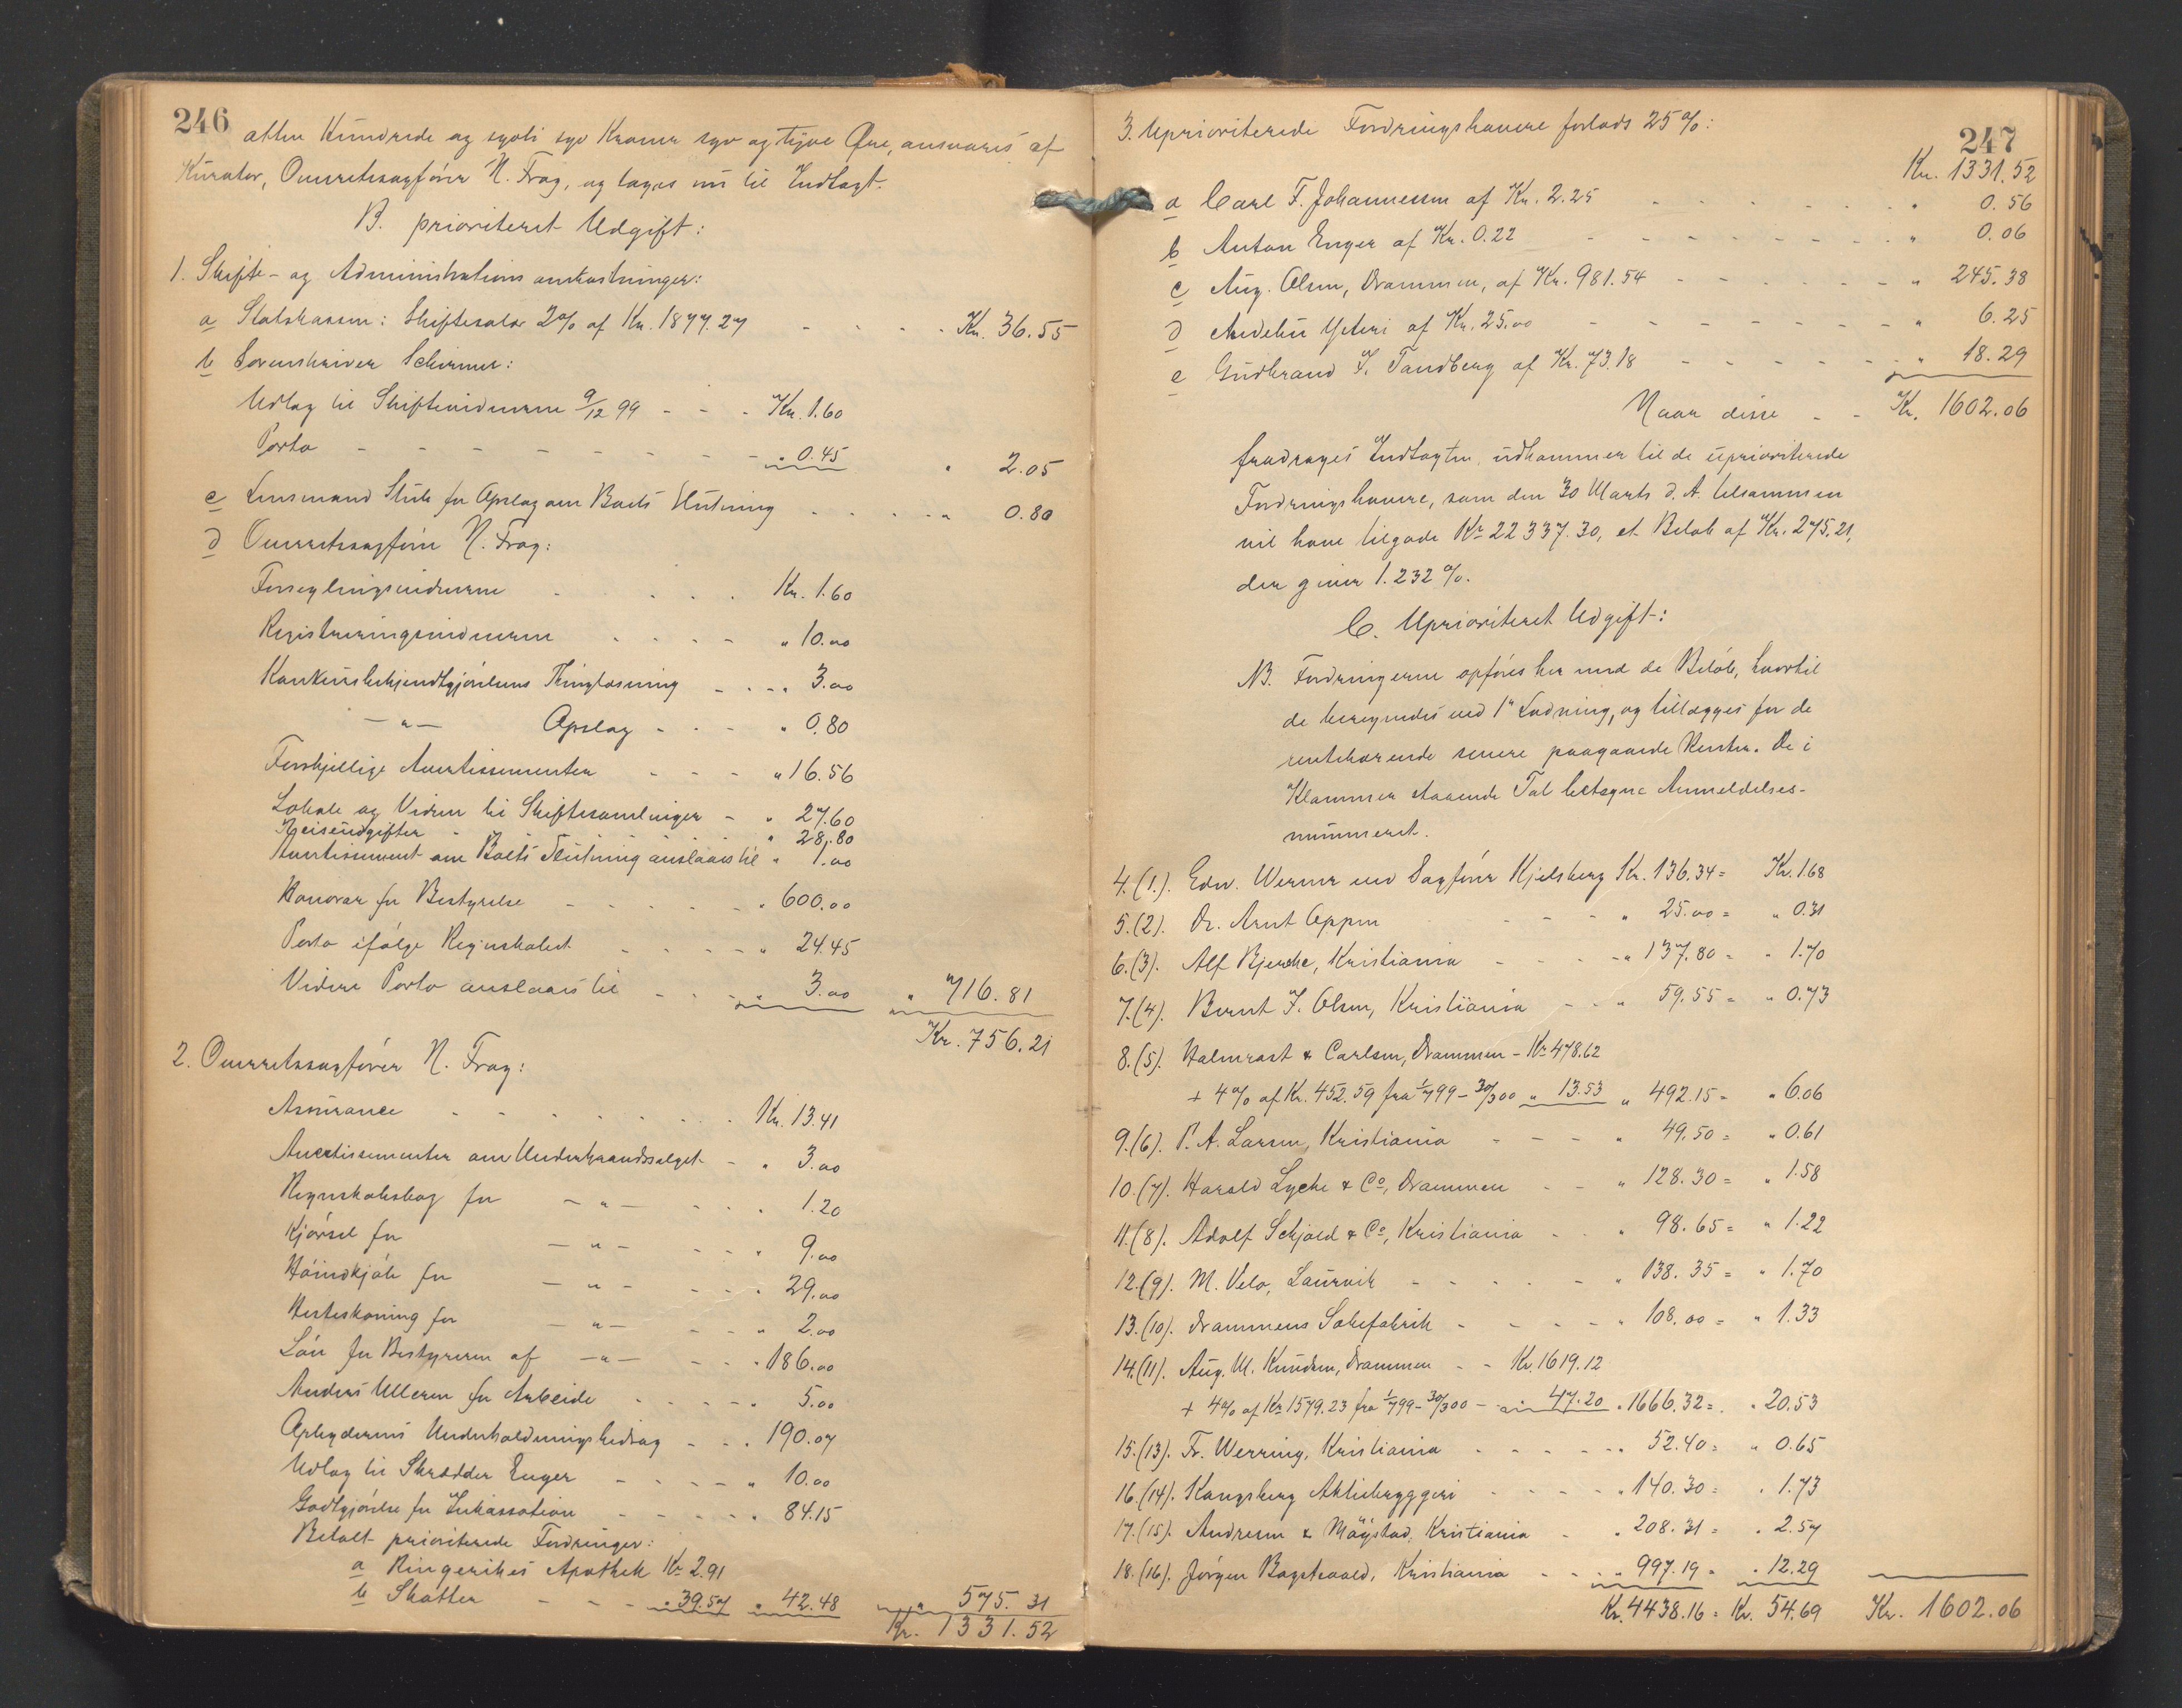 246
atten Hundrede og sytti syv Kroner syv og tyve Øre, ansvares af
Kurator, Overretssagfører N. Frog, og tages nu til Indtægt.
B. prioriteret Udgift:
1. Skifte- og Administrationsomkostninger:
a Statskassen: Skiftesalær 2% af Kr. 1877.27 - - - - Kr. 36.55
b Sorenskriver Schirmer:
Udlæg til Skiftevidnerne 9/12 99 - - - Kr. 1.60
Porto - - - - - - - - - " 0.45 " 2.05
c Lensmand Stub for Opslag om Boets Slutning . . . . . " 0.80
d Overretssagfører N. Frog:
Forseglingsvidnerne . . . . . Kr. 1.60
Registreringsvidnerne . . . - " 10.00
Konkursbekjendtgjørelsens Thinglæsning - . . " 3.00
— " — Opslag - . - " 0.80
Forskjellige Avertissementer - - - " 16.56
Lokale og Vidner til Skiftesamlinger - " 27.60
Reiseudgifter - " 28.80
Avertissement om Boets Slutning anslaaes til " 1.00
Honorar for Bestyrelse - - - - - " 600.00
Porto ifølge Regnskabet - - - - " 24.45
Videre Porto anslaaes til - - - " 3.00 " 716.81
Kr. 756.21
2. Overretssagfører N. Frog:
Assurance - - - - - - . . Kr. 13.41
Avertissementer om Underhaandssalget - " 3.00
Regnskabsbog for — " — - . " 1.20
Kjørsel for — " — - - " 9.00
Haandkjøb for — " — - - " 29.00
Hesteskoning for — " — - - " 2.00
Løn for Bestyreren af — " — - - " 186.00
Anders Ulleren for Arbeide . . - - " 5.00
Opbyderens Underholdningsbidrag - . . " 190.07
Udlæg til Skrædder Enger - - - - " 10.00
Godtgjørelse for Inkassation - - - . " 84.15
Betalt prioriterede Fordringer:
a Ringerikes Apothek Kr. 2.91
b Skatter - - - " 39.57 " 42.48 " 575.31
Kr. 1331.52
247
3. Uprioriterede Fordringshavere forlods 25%:
Kr. 1331.52
a Carl F. Johannessen af Kr. 2.25 - - - - - - " 0.56
b Anton Enger af Kr. 0.22 - - - - - - - - " 0.06
c Aug. Olsen, Drammen, af Kr. 981.54 - - - - - " 245.38
d Ysteri af Kr. 25.00 - - - - - - - " 6.25
e Gudbrand I. Tandberg af Kr. 73.18 - - - - - " 18.29
Naar disse - - Kr. 1602.06
fradrages Indtægten, udkommer til de uprioriterede
Fordringshavere, som den 30 Marts d. A. tilsammen
vil have tilgode Kr. 22337.30, et Beløb af Kr. 275.21,
der giver 1.232 %.
C. Uprioriteret Udgift:
NB. Fordringerne opføres her med de Beløb, hvortil
de beregnedes ved 1ste Lodning, og tillægges for de
rentebærende senere paagaaede Renter. De i
Klammer staaende Tal betegne Anmeldelses-
nummeret.
4.(1). Edw. Werner ved Sagfører Kjelsberg Kr. 136.34 = Kr. 1.68
5.(2). Dr. Arnt Oppen - - - " 25.00 = " 0.31
6.(3). Alf Bjercke, Kristiania - - - " 137.80 = " 1.70
7.(4). Bernt I. Olsen, Kristiania - - " 59.55 = " 0.73
8.(5). Halmrast & Carlsen, Drammen - Kr. 478.62
+ 4% af Kr. 452.59 fra 1/7 99 - 30/3 00 " 13.53 " 492.15 = " 6.06
9.(6). P. A. Larsen, Kristiania - - - " 49.50 = " 0.61
10.(7). Harald Lyche & Co, Drammen - - " 128.30 = " 1.58
11.(8). Adolf Schjold & Co, Kristiania - - " 98.65 = " 1.22
12.(9). M. Velo, Laurvik - - - - - " 138.35 = " 1.70
13.(10). Drammens Sæbefabrik - - - - - " 108.00 = " 1.33
14.(11). Aug. M. Knudsen, Drammen - - Kr. 1619.12
+ 4% af Kr. 1579.23 fra 1/7 99 - 30/3 00 - " 47.20 " 1666.32 = " 20.53
15.(13). Fr. Werring, Kristiania - - - - - " 52.40 = " 0.65
16.(14). Kongsberg Aktiebryggeri - - - - " 140.30 = " 1.73
17.(15). Andresen & Møystad, Kristiania - . " 208.31 = " 2.57
18.(16). Jørgen Kristiania - . . " 997.19 = " 12.29
Kr. 4438.16 = Kr. 54.69 Kr. 1602.06